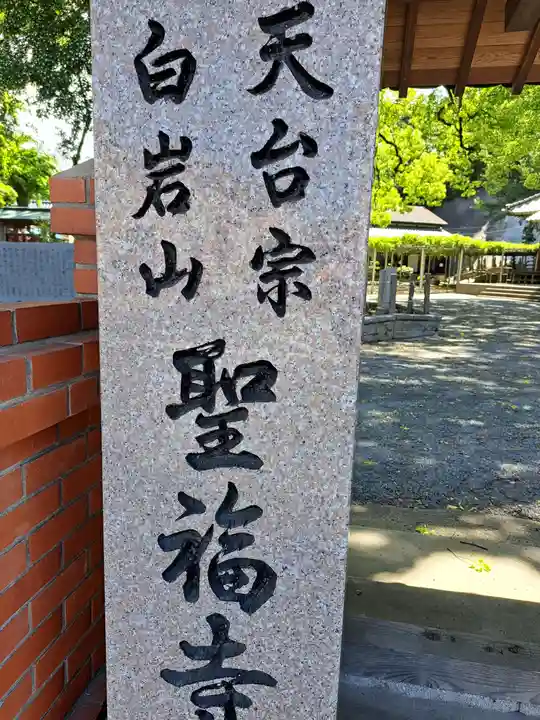 天台宗
白岩山
聖福寺